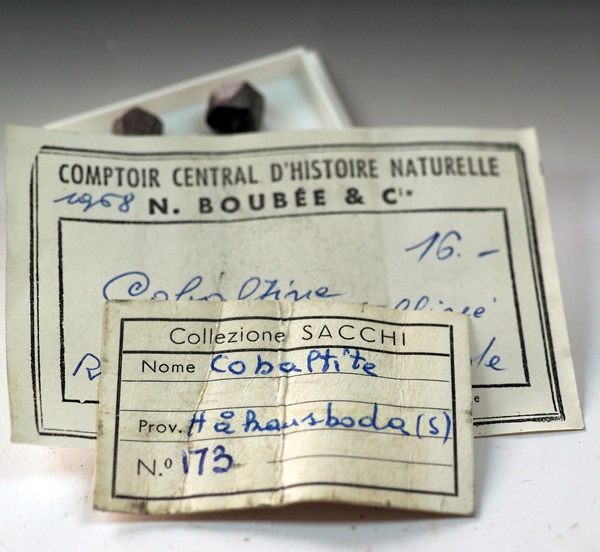 COMPTOIR CENTRAL D'HISTOIRE NATURELLE
1968 N. BOUBÉE & Cie
16.-
Cobaltine
Collezione SACCHI
Nome Cobaltite
Prov. Håkansboda (S)
N.º 173